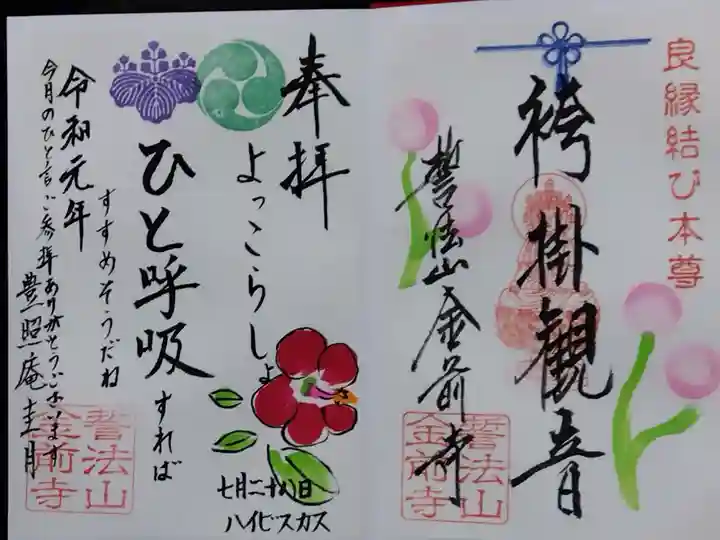 良縁結び本尊
袴掛観音
誓法山金前寺
誓法山
金前寺
奉拝
よっこらしょ
ひと呼吸すれば
すすめそうだね
令和元年
今月のひと言ご参拝ありがとうございます
豊照庵圭月
七月二十八日
ハイビスカス
誓法山
金前寺